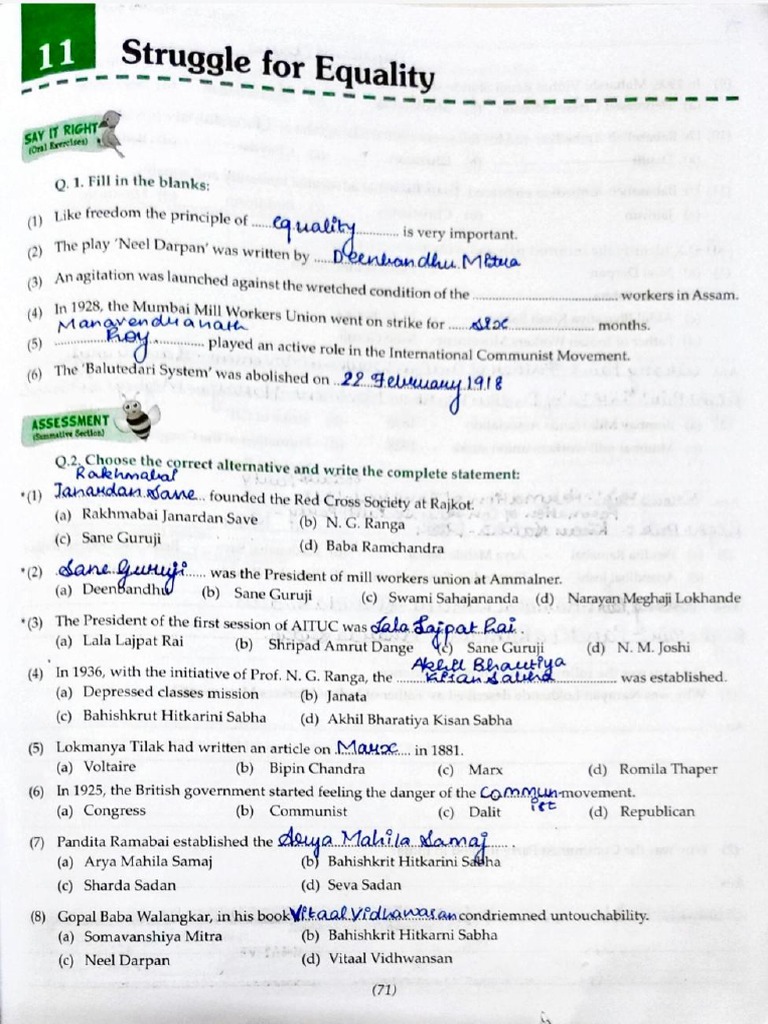 11 Struggle for Equality
SAY IT RIGHT
(Oral Exercises)
Q. 1. Fill in the blanks:
(1) Like freedom the principle of ..... equality ............ is very important.
(2) The play 'Neel Darpan' was written by ...... Deenbandhu Mitra
(3) An agitation was launched against the wretched condition of the ........................................ workers in Assam.
(4) In 1928, the Mumbai Mill Workers Union went on strike for ...... six ...................... months.
Manavendranath
(5) .............. Roy .............. played an active role in the International Communist Movement.
(6) The 'Balutedari System' was abolished on .. 22 February 1918
ASSESSMENT
(Summative Section)
Q.2. Choose the correct alternative and write the complete statement:
Rakhmabai
*(1) Janardan Sane... founded the Red Cross Society at Rajkot.
(a) Rakhmabai Janardan Save (b) N. G. Ranga
(c) Sane Guruji (d) Baba Ramchandra
*(2) Sane Guruji...... was the President of mill workers union at Ammalner.
(a) Deenbandhu (b) Sane Guruji (c) Swami Sahajananda (d) Narayan Meghaji Lokhande
*(3) The President of the first session of AITUC was Lala Lajpat Rai.
(a) Lala Lajpat Rai (b) Shripad Amrut Dange (c) Sane Guruji (d) N. M. Joshi
Akhil Bhartiya
(4) In 1936, with the initiative of Prof. N. G. Ranga, the ....... Kisan Sabha ............ was established.
(a) Depressed classes mission (b) Janata
(c) Bahishkrut Hitkarini Sabha (d) Akhil Bharatiya Kisan Sabha
(5) Lokmanya Tilak had written an article on .Marx.... in 1881.
(a) Voltaire (b) Bipin Chandra (c) Marx (d) Romila Thaper
(6) In 1925, the British government started feeling the danger of the commun- movement.
ist
(a) Congress (b) Communist (c) Dalit (d) Republican
(7) Pandita Ramabai established the Arya Mahila Samaj .....
(a) Arya Mahila Samaj (b) Bahishkrit Hitkarini Sabha
(c) Sharda Sadan (d) Seva Sadan
(8) Gopal Baba Walangkar, in his book Vitaal Vidhawasan condriemned untouchability.
(a) Somavanshiya Mitra (b) Bahishkrit Hitkarni Sabha
(c) Neel Darpan (d) Vitaal Vidhwansan
(71)